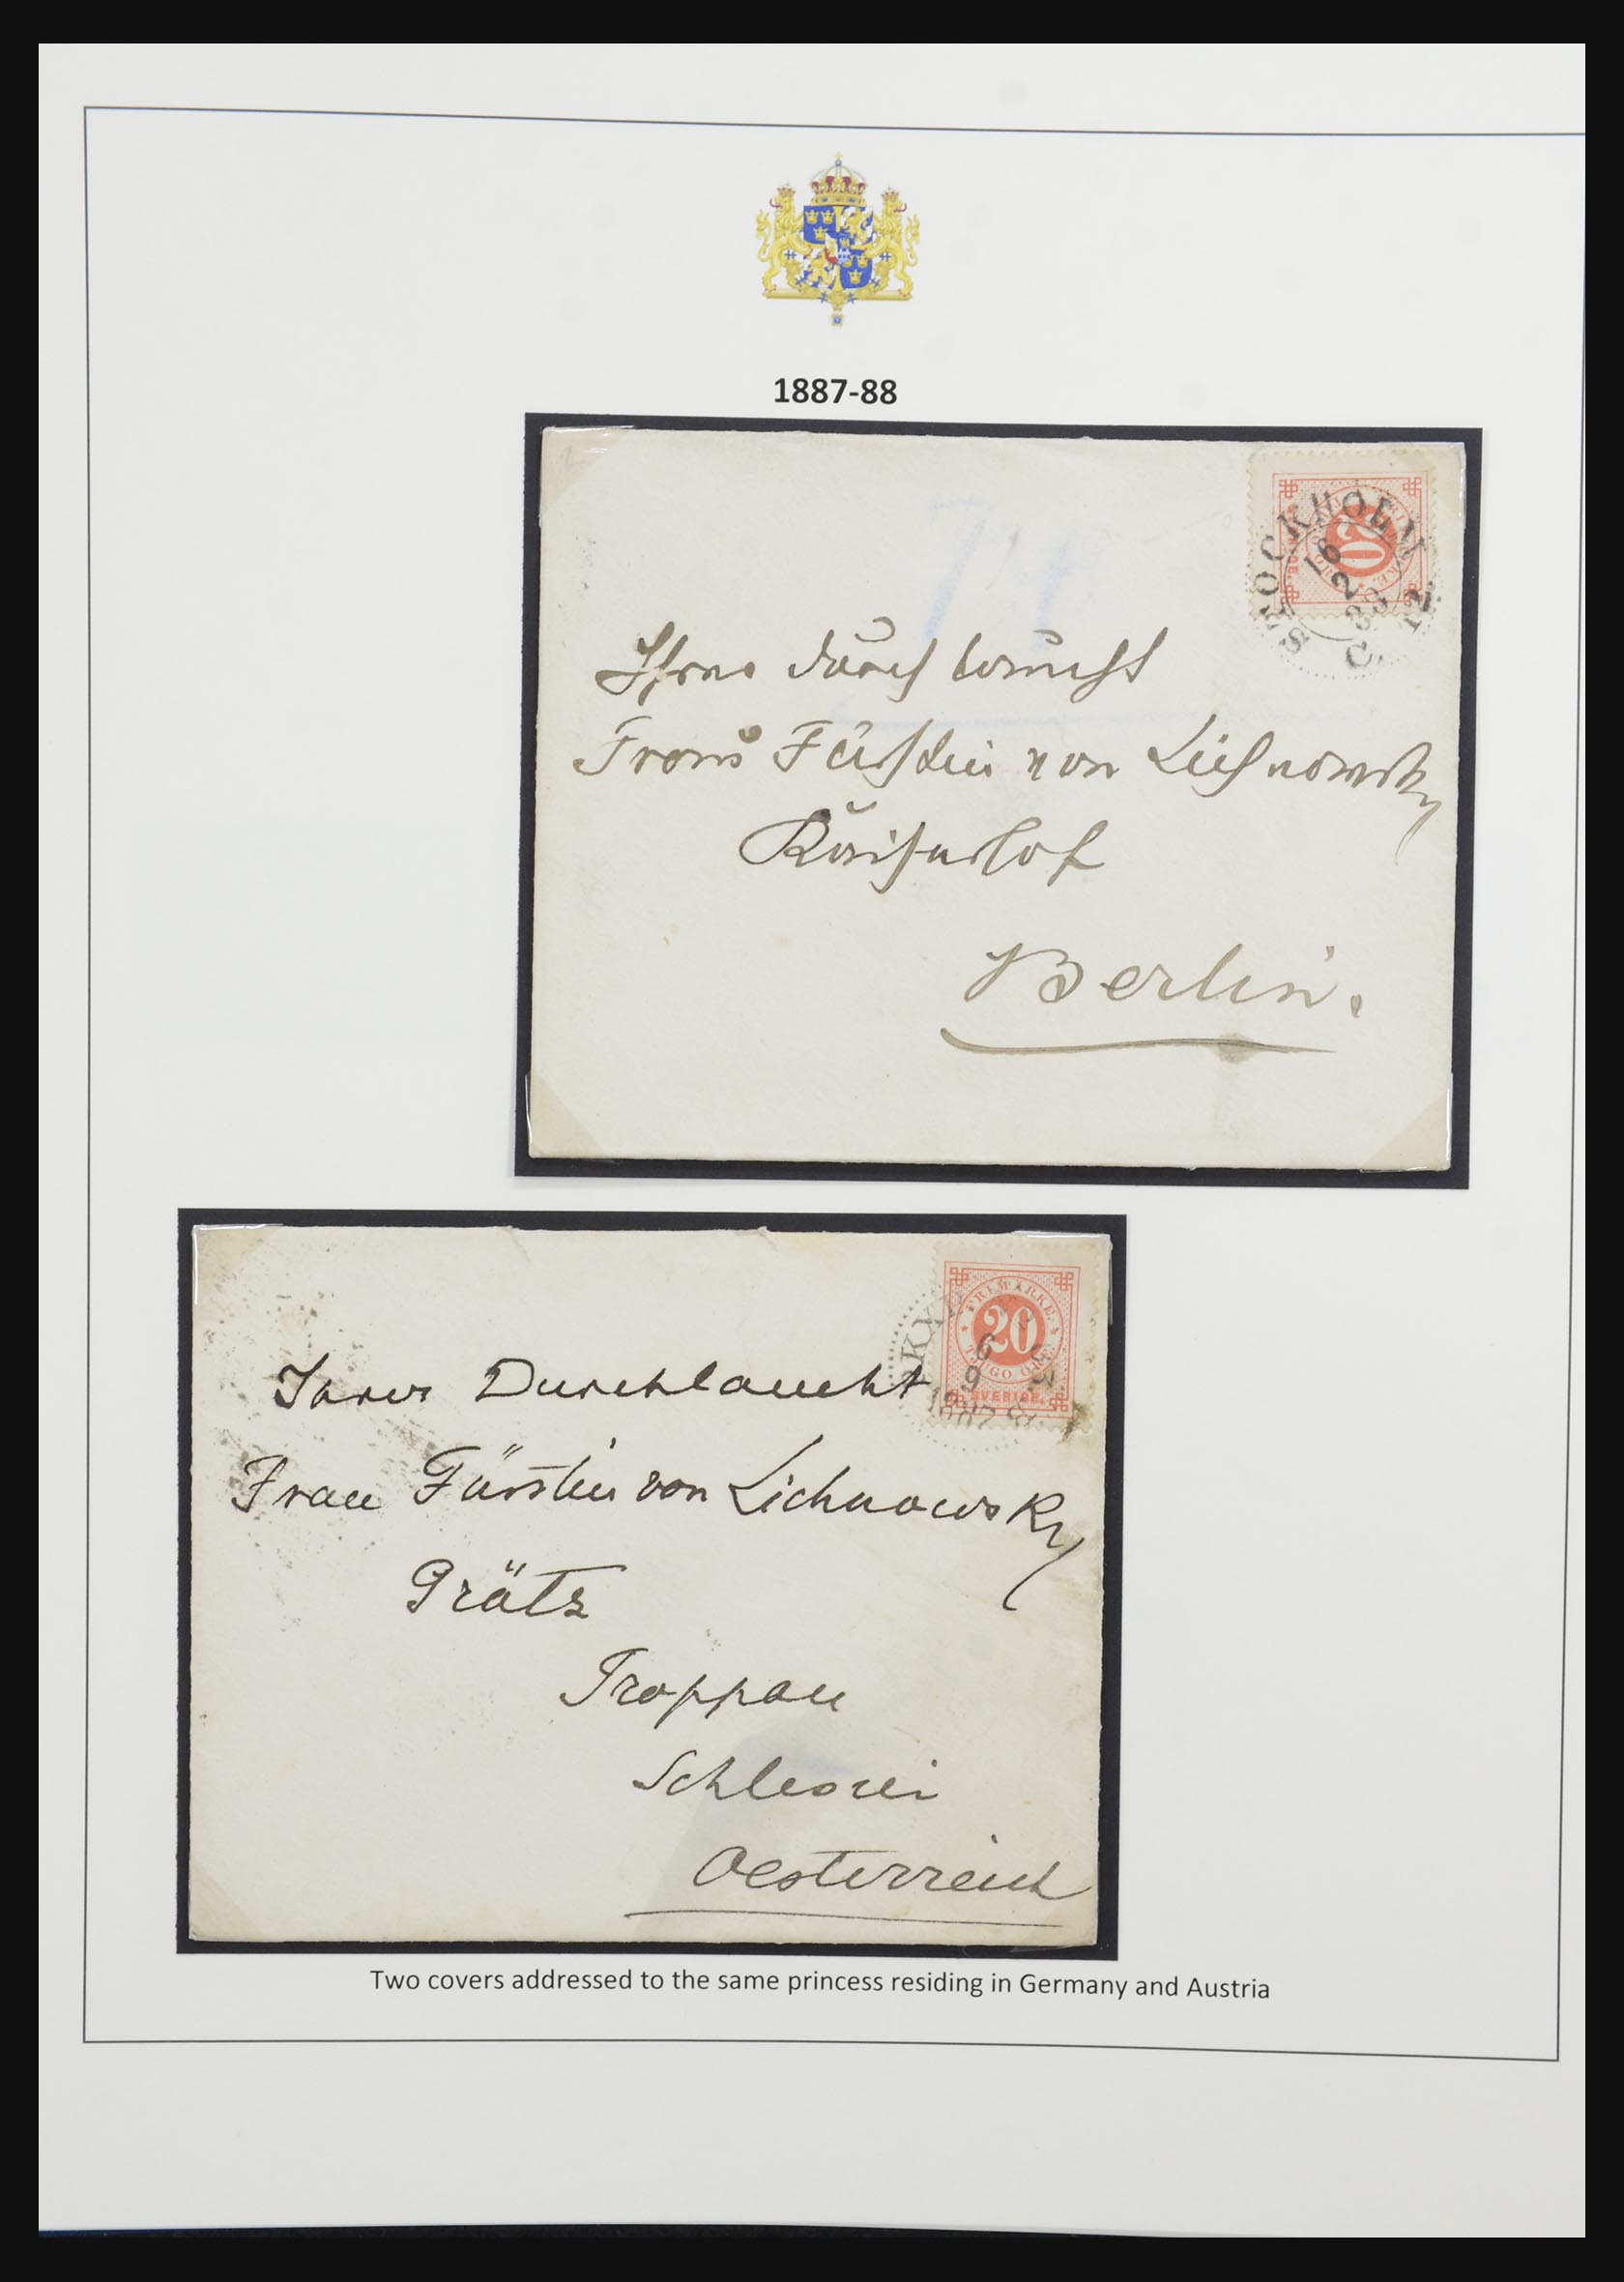 1887-88
STOCKHOLM
16
2
88
20
Ihrer Durchlaucht
Frau Fürstin von Lichnowsky
Kaiserhof
Berlin.
FRIMÄRKE
20
TJUGO ÖRE
SVERIGE
PKXP
6
9
1887
Ihrer Durchlaucht
Frau Fürstin von Lichnowsky
Grätz
Troppau
Schlesien
Oesterreich
Two covers addressed to the same princess residing in Germany and Austria